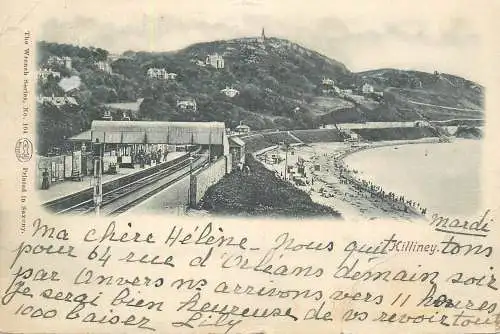 The Wrench Series, No. 104
Printed in Saxony.
Killiney.
mardi
Ma chère Hélène - Nous quittons
pour 64 rue d'Orléans demain soir
par Anvers ns arrivons vers 11 heures
Je serai bien heureuse de vs revoir tout
1000 baisers Lily